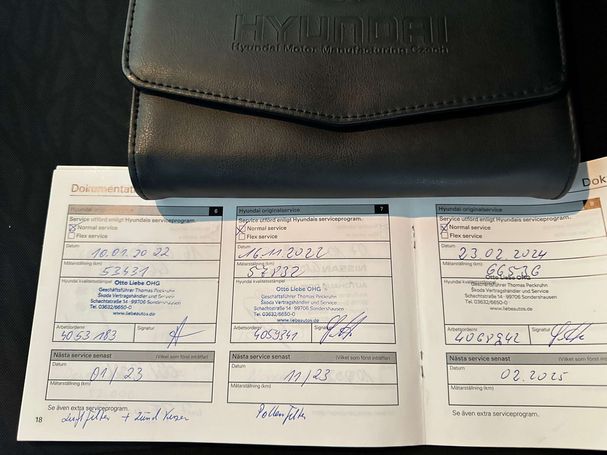 HYUNDAI
Hyundai Motor Manufacturing Czech
Dokumentat
Dok
Hyundai originalservice 6
Service utförd enligt Hyundais serviceprogram.
Normal service
Flex service
Datum
10.01.2022
Mätarställning (km)
53431
Hyundai kvalitetsstämpel
Otto Liebe OHG
Geschäftsführer Thomas Peckruhn
Škoda Vertragshändler und Service
Schachtstraße 14 · 99706 Sondershausen
Tel. 03632/6650-0
www.liebeautos.de
Arbetsordernr Signatur
4053183
Nästa service senast (Vilket som först inträffar)
Datum
01/23
Mätarställning (km)
Se även extra serviceprogram.
18
Luftfilter + Zünd Kerzen
Hyundai originalservice 7
Service utförd enligt Hyundais serviceprogram.
Normal service
Flex service
Datum
16.11.2022
Mätarställning (km)
57832
Hyundai kvalitetsstämpel
Otto Liebe OHG
Geschäftsführer Thomas Peckruhn
Škoda Vertragshändler und Service
Schachtstraße 14 · 99706 Sondershausen
Tel. 03632/6650-0
www.liebeautos.de
Arbetsordernr Signatur
4059341
Nästa service senast (Vilket som först inträffar)
Datum
11/23
Mätarställning (km)
Pollenfilter
Hyundai originalservice
Service utförd enligt Hyundais serviceprogram.
Normal service
Flex service
Datum
23.02.2024
Mätarställning (km)
Hyundai kvalitetsstämpel
Otto Liebe OHG
Geschäftsführer Thomas Peckruhn
Škoda Vertragshändler und Service
Schachtstraße 14 · 99706 Sondershausen
Tel. 03632/6650-0
www.liebeautos.de
Arbetsordernr Signatur
Nästa service senast (Vilket som först inträffar)
Datum
02.2025
Mätarställning (km)
Se även extra serviceprogram.